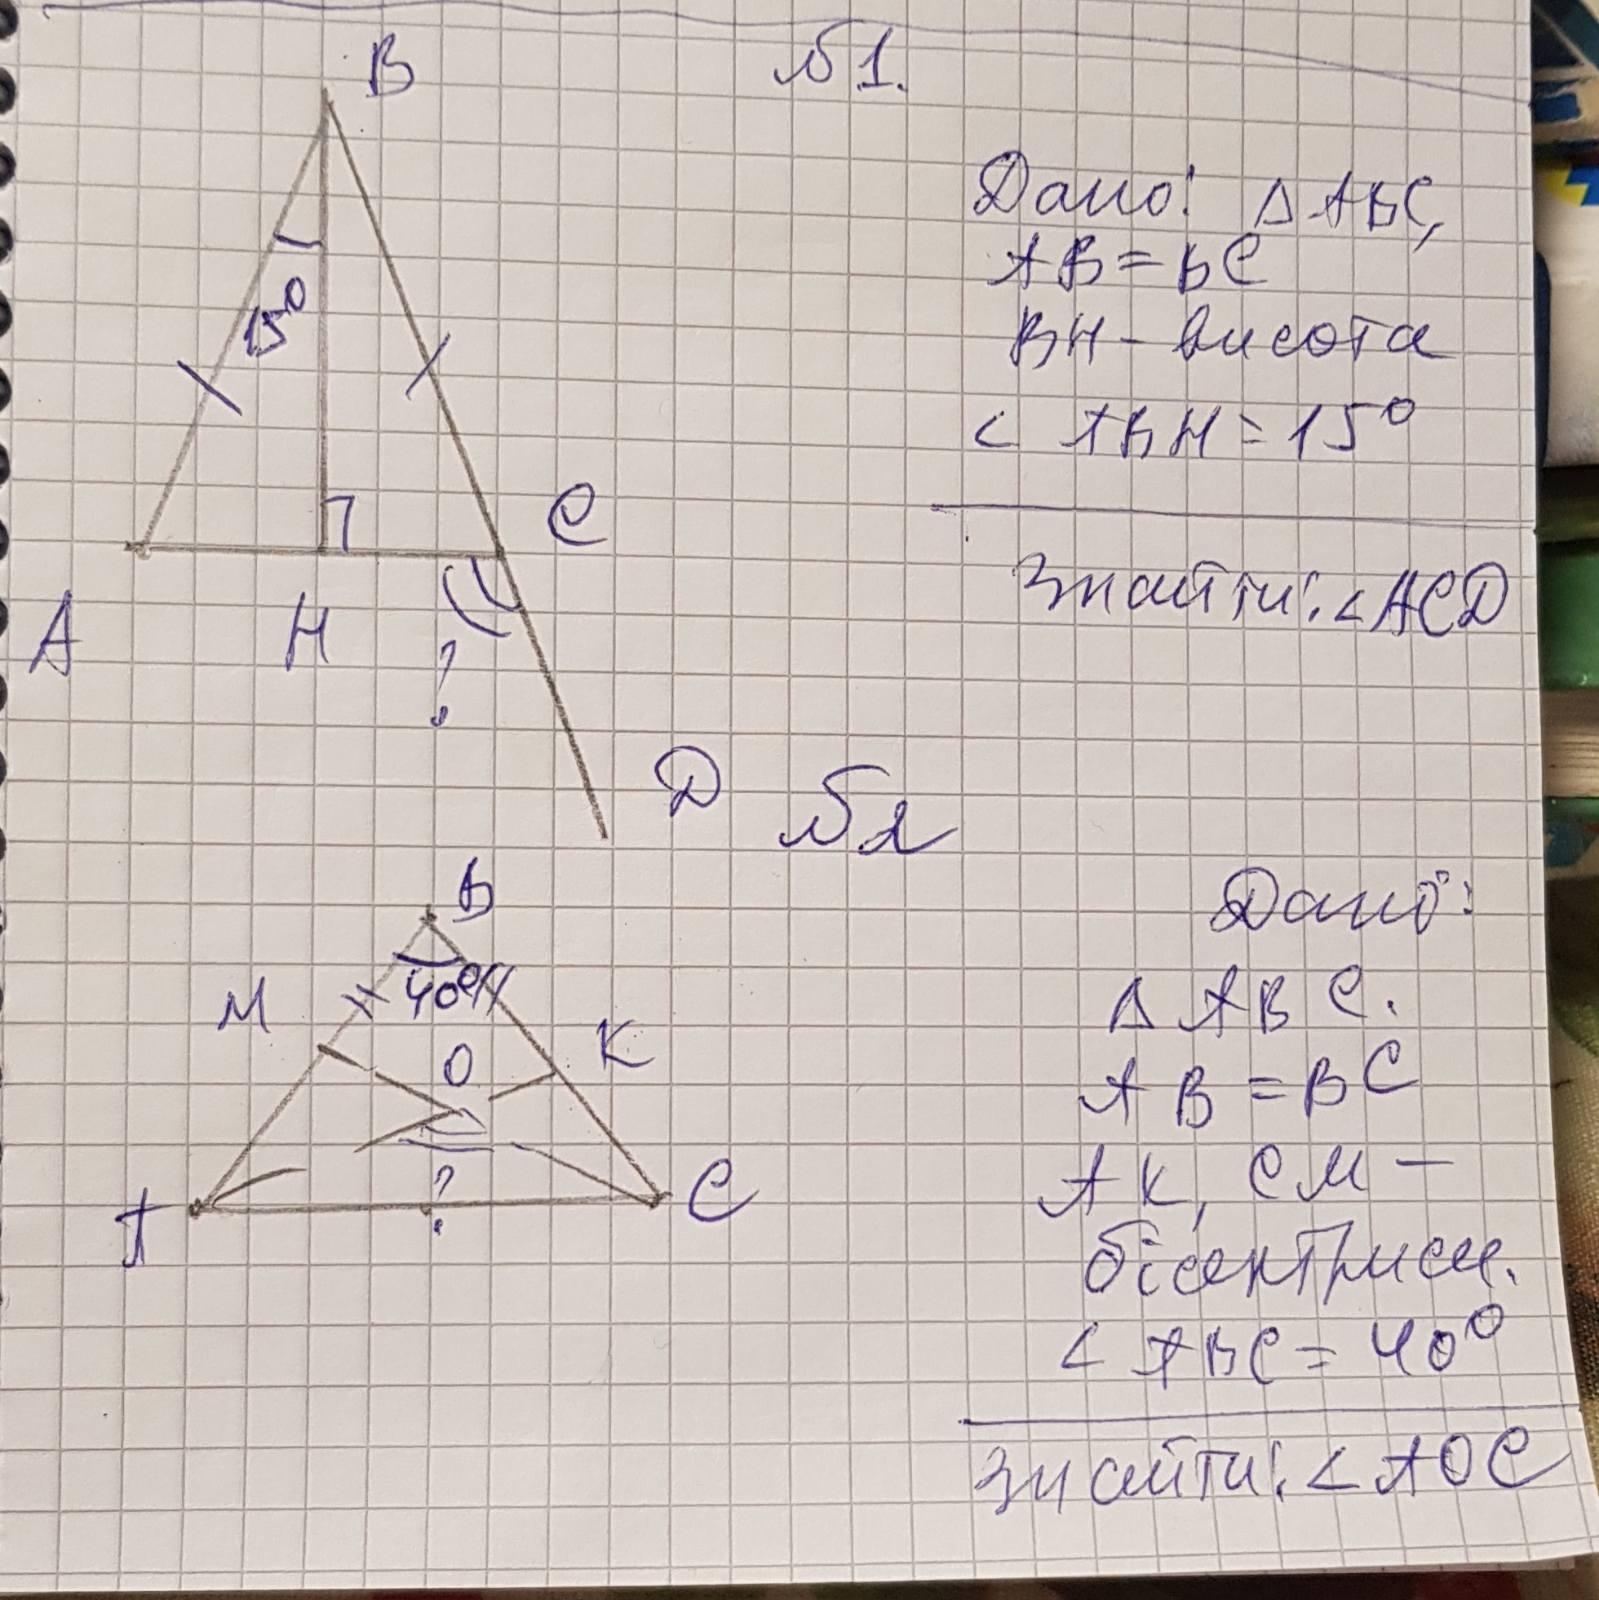 №1.
B
Дано: Δ ABC,
AB = BC
BH - висота
< ABH = 15°
15°
C
Знайти: < ACD
A
H
?
D
№2
B
Дано:
Δ ABC.
AB = BC
AK, CM -
бісектриси.
< ABC = 40°
M
40°
K
O
A
?
C
Знайти: < AOC